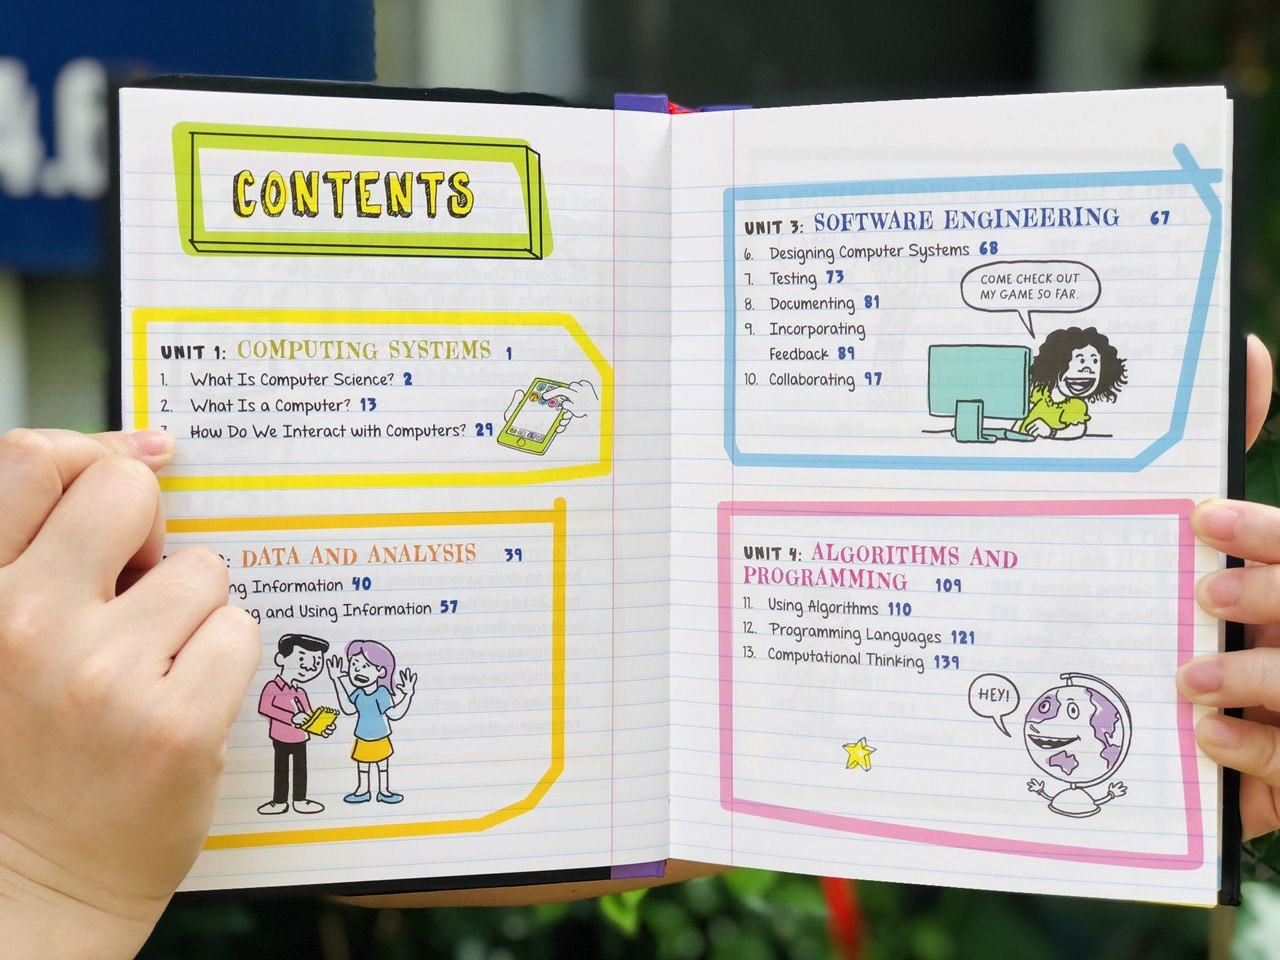 4.6
CONTENTS
UNIT 1: COMPUTING SYSTEMS 1
1. What Is Computer Science? 2
2. What Is a Computer? 13
How Do We Interact with Computers? 29
DATA AND ANALYSIS 39
Information 40
and Using Information 57
UNIT 3: SOFTWARE ENGINEERING 67
6. Designing Computer Systems 68
7. Testing 73
8. Documenting 81
9. Incorporating
Feedback 89
10. Collaborating 97
COME CHECK OUT
MY GAME SO FAR.
UNIT 4: ALGORITHMS AND
PROGRAMMING 109
11. Using Algorithms 110
12. Programming Languages 121
13. Computational Thinking 139
HEY!